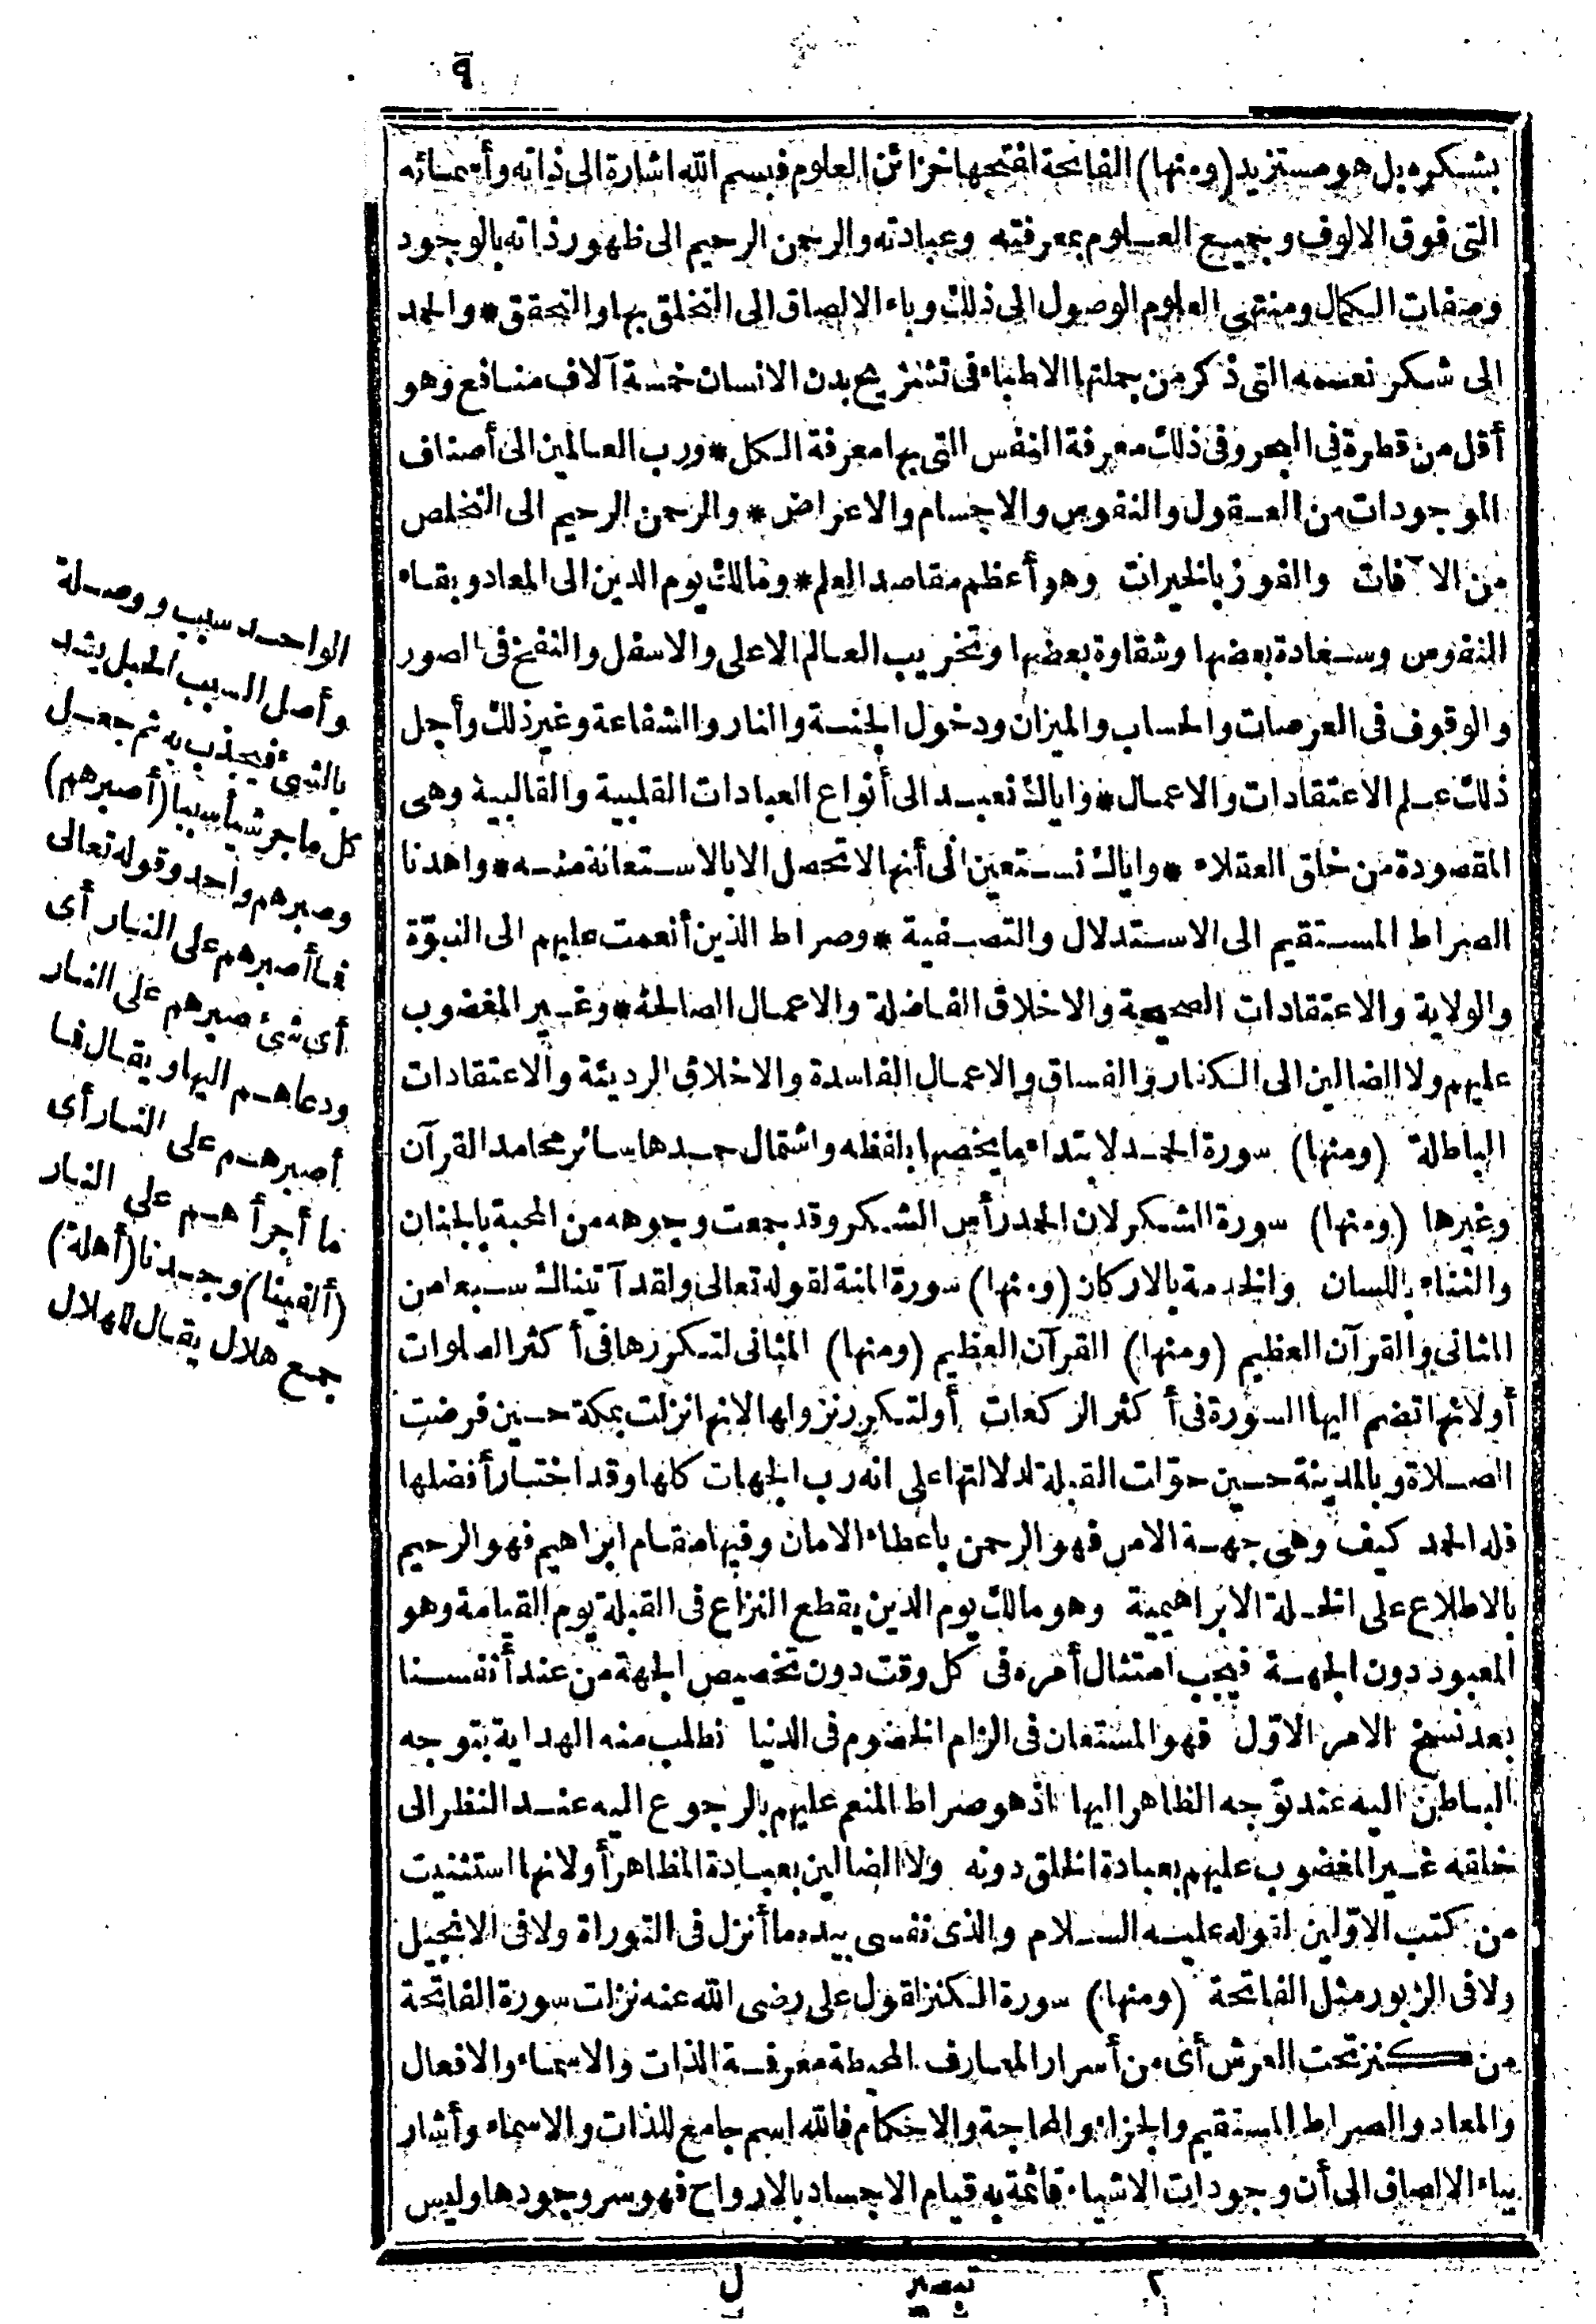 ٩
بشكره بل هو مستزيد (ومنها) الفاتحة لفتحها خزائن العلوم فبسم الله اشارة الى ذاته وأسمائه
التى فوق الالوف وجميع العلوم بمعرفته وعبادته والرحمن الرحيم الى ظهور ذاته بالوجود
وصفات الكمال ومنتهى العلوم الوصول الى ذلك وباء الالصاق الى التخلق بها والتحقق * والحمد
الى شكر نعمه التى ذكر من جملتها الاطباء فى تشريح بدن الانسان خمسة آلاف منافع وهو
أقل من قطرة فى البحر وفى ذلك معرفة النفس التى بها معرفة الكل * ورب العالمين الى أصناف
الموجودات من العقول والنفوس والاجسام والاعراض * والرحمن الرحيم الى التخلص
من الآفات والفوز بالخيرات وهو أعظم مقاصد العلم * ومالك يوم الدين الى المعاد وبقاء
النفوس وسعادة بعضها وشقاوة بعضها وتخريب العالم الاعلى والاسفل والنفخ فى الصور
والوقوف فى العرصات والحساب والميزان ودخول الجنة والنار والشفاعة وغير ذلك وأجل
ذلك علم الاعتقادات والاعمال * واياك نعبد الى أنواع العبادات القلبية والقالبية وهى
المقصودة من خلق العقلاء * واياك نستعين الى أنها لا تحصل الا بالاستعانة منه * واهدنا
الصراط المستقيم الى الاستدلال والتصفية * وصراط الذين أنعمت عليهم الى النبوّة
والولاية والاعتقادات الصحيحة والاخلاق الفاضلة والاعمال الصالحة * وغير المغضوب
عليهم ولا الضالين الى الكفار والفساق والاعمال الفاسدة والاخلاق الرديئة والاعتقادات
الباطلة (ومنها) سورة الحمد لابتداء ما يخصها بلفظه واشتمال حمدها سائر محامد القرآن
وغيرها (ومنها) سورة الشكر لان الحمد رأس الشكر وقد جمعت وجوهه من المحبة بالجنان
والثناء باللسان والخدمة بالاركان (ومنها) سورة المنة لقوله تعالى ولقد آتيناك سبعا من
المثانى والقرآن العظيم (ومنها) القرآن العظيم (ومنها) المثانى لتكررها فى أكثر الصلوات
أو لانها تضم اليها السورة فى أكثر الركعات أو لتكرر نزولها لانها نزلت بمكة حين فرضت
الصلاة وبالمدينة حين حوّلت القبلة لدلالتها على انه رب الجهات كلها وقد اختار أفضلها
فله الحمد كيف وهى جهة الامر فهو الرحمن باعطاء الامان وفيها مقام ابراهيم فهو الرحيم
بالاطلاع على الخلة الابراهيمية وهو مالك يوم الدين يقطع النزاع فى القبلة يوم القيامة وهو
المعبود دون الجهة فيجب امتثال أمره فى كل وقت دون تخصيص الجهة من عند أنفسنا
بعد نسخ الامر الاوّل فهو المستعان فى الزام الخصوم فى الدنيا نطلب منه الهداية بتوجه
الباطن اليه عند توّجه الظاهر اليها اذ هو صراط المنعم عليهم بالرجوع اليه عند النظر الى
خلقه غير المغضوب عليهم بعبادة الخلق دونه ولا الضالين بعبادة المظاهر أو لانها استثنيت
من كتب الاوّلين لقوله عليه السلام والذى نفسى بيده ما أنزل فى التوراة ولا فى الانجيل
ولا فى الزبور مثل الفاتحة (ومنها) سورة الكنز لقول على رضى الله عنه نزلت سورة الفاتحة
من كنز تحت العرش أى من أسرار المعارف المحيطة معرفة الذات والاسماء والافعال
والمعاد والصراط المستقيم والجزاء والمحاجة والاحكام فالله اسم جامع للذات والاسماء وأشار
بباء الالصاق الى أن وجودات الاشياء قائمة به قيام الاجساد بالارواح فهو سر وجودها وليس
الواحد سبب ووصلة
وأصل السبب الحبل يشد
بالشىء فيجذب به ثم جعل
كل ما جر شيأ سببا (أصبرهم)
وصبرهم واحد وقوله تعالى
فما أصبرهم على النار أى
أى شئ صبرهم على النار
ودعاهم اليها ويقال فما
أصبرهم على النار أى
ما أجرأهم على النار
(ألفينا) وجدنا (أهلة)
جمع هلال يقال للهلال
٢ تبصير ل